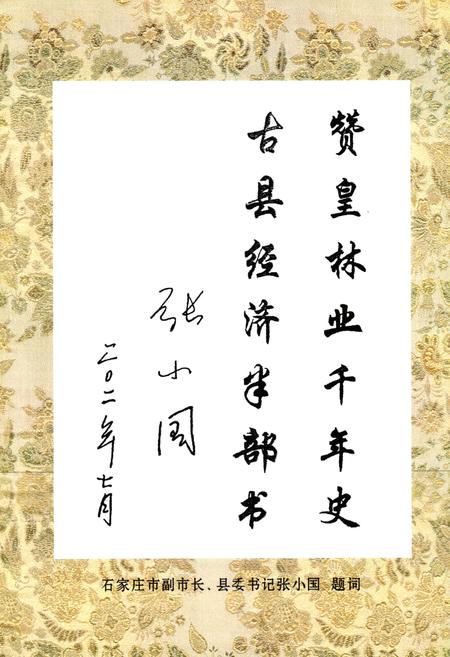 赞皇林业千年史
古县经济半部书
张小国
二〇一二年七月
石家庄市副市长、县委书记张小国 题词